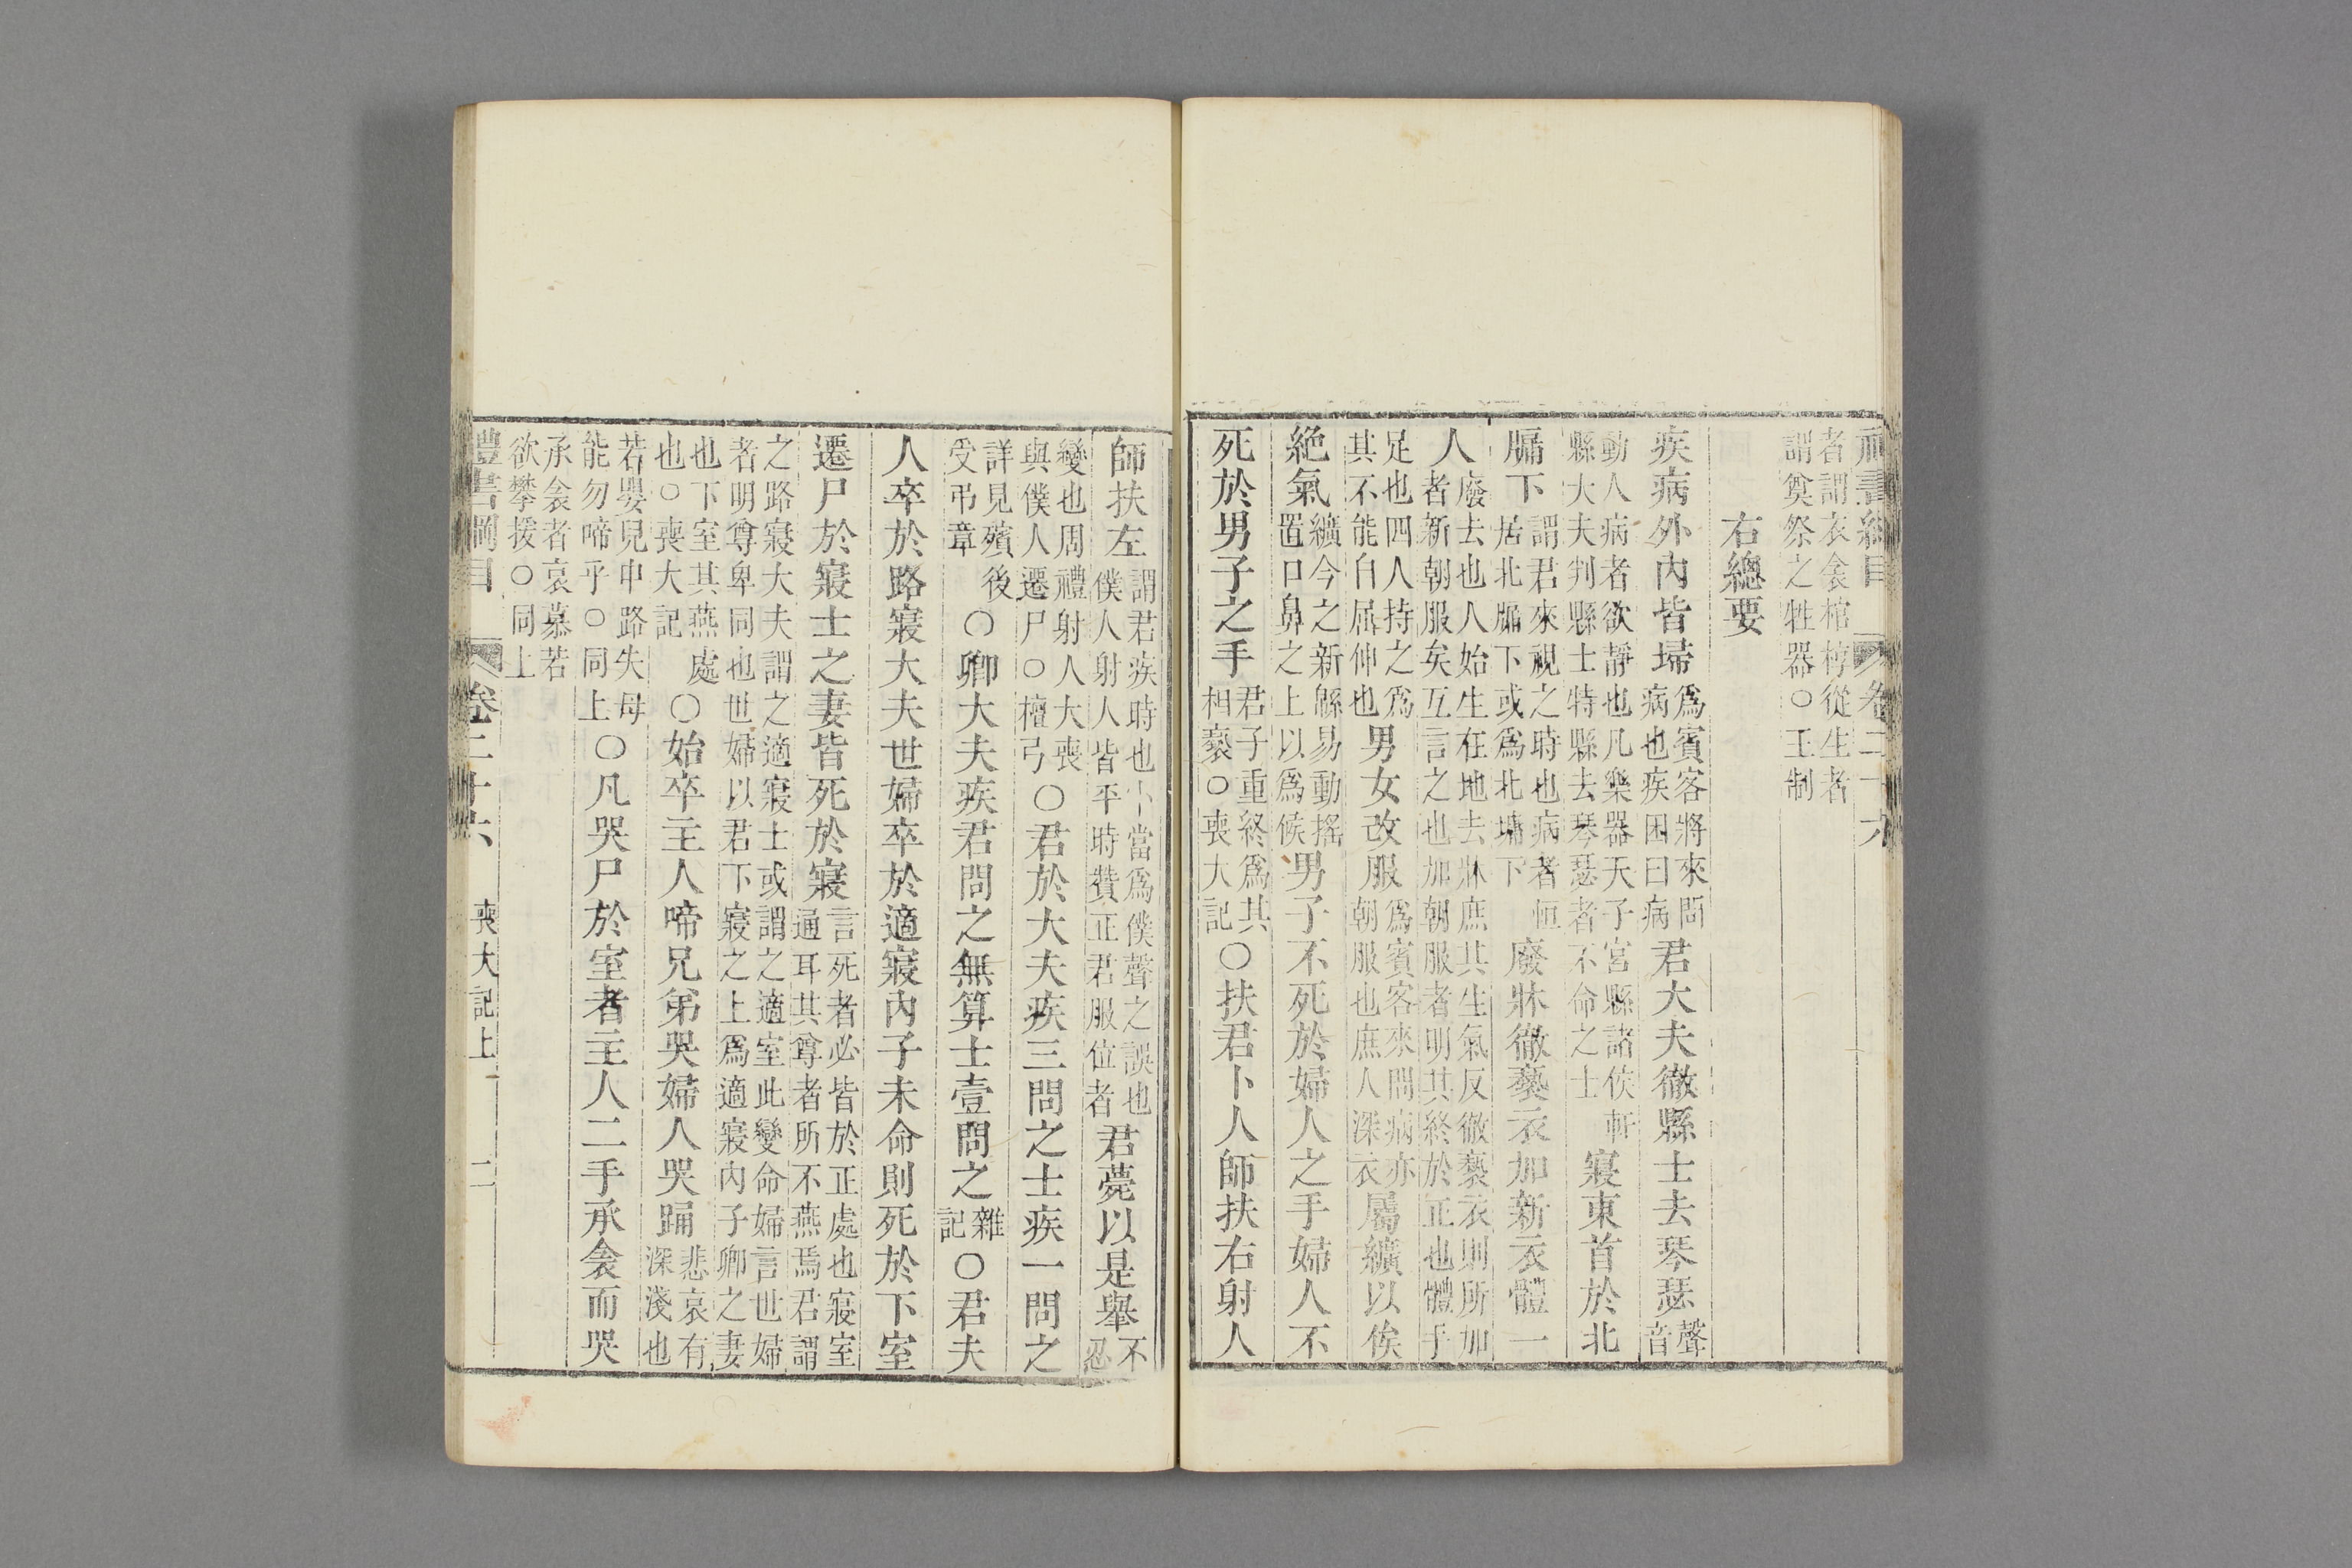 禮書綱目　卷二十六
者謂衣衾棺椁從生者
謂奠祭之牲器○王制
右總要
疾病外內皆埽為賓客將來問
病也疾困曰病君大夫徹縣士去琴瑟聲
音
動人病者欲靜也凡樂器天子宮縣諸侯軒
縣大夫判縣士特縣去琴瑟者不命之士寢東首於北
牖下謂君來視之時也病者恒
居北牖下或為北墉下廢牀徹褻衣加新衣體一
人廢去也人始生在地去牀庶其生氣反徹褻衣則所加
者新朝服矣互言之也加朝服者明其終於正也體手
足也四人持之為
其不能自屈伸也男女改服為賓客來問病亦
朝服也庶人深衣屬纊以俟
絶氣纊今之新緜易動搖
置口鼻之上以為候男子不死於婦人之手婦人不
死於男子之手君子重終為其
相褻○喪大記○扶君卜人師扶右射人
師扶左謂君疾時也卜當為僕聲之誤也
僕人射人皆平時贊正君服位者君薨以是舉不
忍
變也周禮射人大喪
與僕人遷尸○檀弓○君於大夫疾三問之士疾一問之
詳見殯後
受弔章○卿大夫疾君問之無算士壹問之雜
記○君夫
人卒於路寢大夫世婦卒於適寢內子未命則死於下室
遷尸於寢士之妻皆死於寢言死者必皆於正處也寢室
通耳其尊者所不燕焉君謂
之路寢大夫謂之適寢士或謂之適室此變命婦言世婦
者明尊卑同也世婦以君下寢之上為適寢內子卿之妻
也下室其燕處
也○喪大記○始卒主人啼兄弟哭婦人哭踊悲哀有
深淺也
若嬰兒中路失母
能勿啼乎○同上○凡哭尸於室者主人二手承衾而哭
承衾者哀慕若
欲攀援○同上
禮書綱目　卷二十六　喪大記上　二